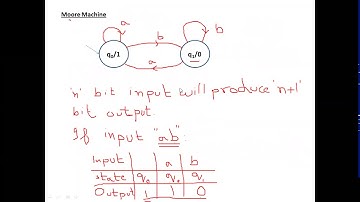 Moore Machine
a
b
q0/1
b
q1/0
a
'n' bit input will produce 'n+1'
bit output.
If input "ab":
Input a b
state q0 q0 q1
Output 1 1 0